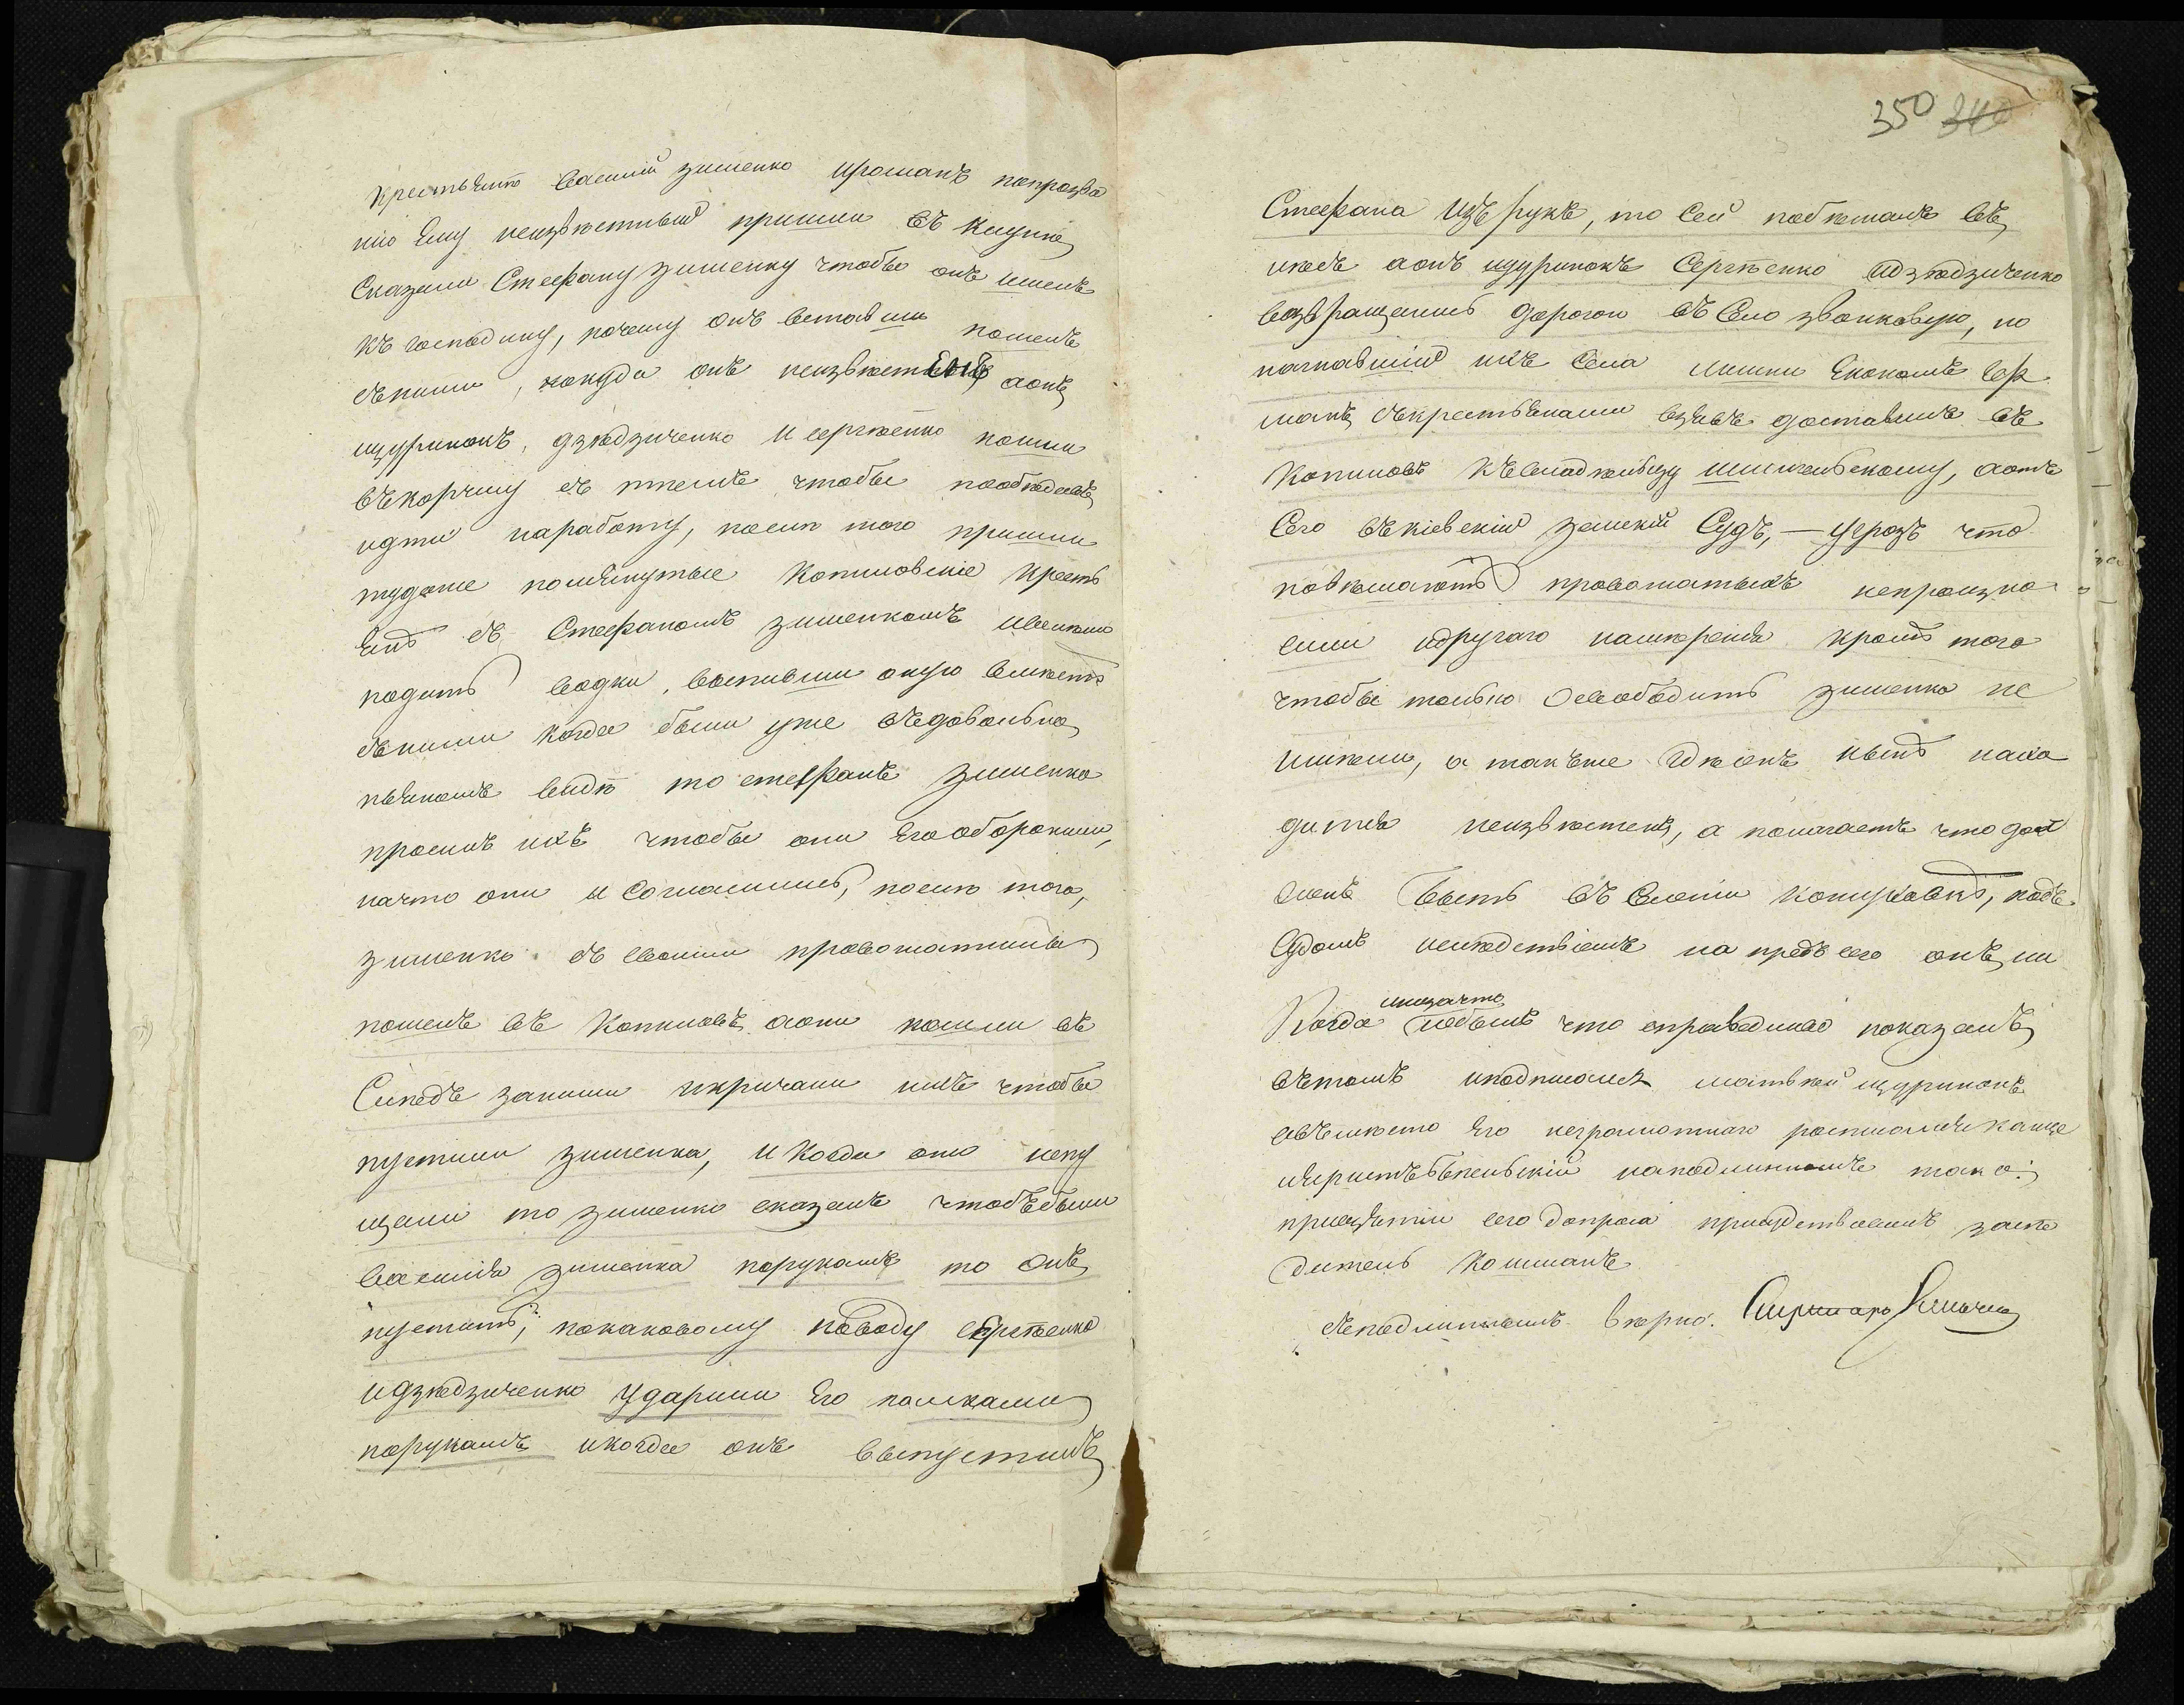 крестьянъ Василій зименко ироманъ попрозва
нію Ему неизвѣстный пришли въ Клуню
Сказали Стефану зименку чтобы онъ шелъ
къ господину, почему онъ вставши пошелъ
съ ними, накуда онъ неизвѣстЕнъ аонъ
щуринокъ, дзюдзиченко и сергѣенко пошли
въ корчму съ тѣмъ чтобы пообѣдавъ
идти наработу, послѣ того пришли
тудаже помянутые Копиловскіе кресть
янѣ съ Стефаномъ зименкомъ ивелели
подать водки, выпивши оную вмѣстѣ
съ ними когда были уже въ довольно
пьяномъ видѣ то стефанъ зименко
просилъ ихъ чтобы они Его оборонили,
начто они и Согласились, послѣ того,
зименко съ своими провожатыми
пошелъ въ Копиловъ аони пошли въ
Слѣдъ заними икричали имъ чтобы
пустили зименка, и когда они непу
щали то зименко сказалъ чтобъ были
василія зименка порукамъ то онъ
пуститъ; покаковому поводу сергѣенко
идзюдзиченко ударили Его палками
порукамъ икогда онъ выпустилъ
350 340
Стефана изъ рукъ, то Сей побѣжалъ въ
лѣсъ аонъ щуринокъ Сергѣенко идзюдзиченко
возвращались дорогою въ Село звонковую, но
нагнавшій ихъ Села Лишни Економъ
съ крестьянами взявъ доставилъ въ
Копиловъ къ владѣльцу, аотъ
Сего въ кіевскій земскій Судъ, — угрозъ что
повѣшаютъ провожатыхъ непроизно
сили идругаго намѣренія кромѣ того
чтобы только освободить зименка не
имѣли, а такъже гдѣ онъ нынѣ нахо
дится неизвѣстенъ, а полагаетъ что дол
женъ быть въ Селеніи, подъ
Судомъ ислѣдствіемъ на предъ сего онъ ни
Когда низачто небылъ что справедливо показалъ
вътомъ иподписался матвѣй щуринокъ
авъмѣсто Его неграмотнаго росписался
наподлинномъ тако:
приснятіи сего допроса присудствовалъ засѣ
датель
съ подлиннымъ вѣрно.